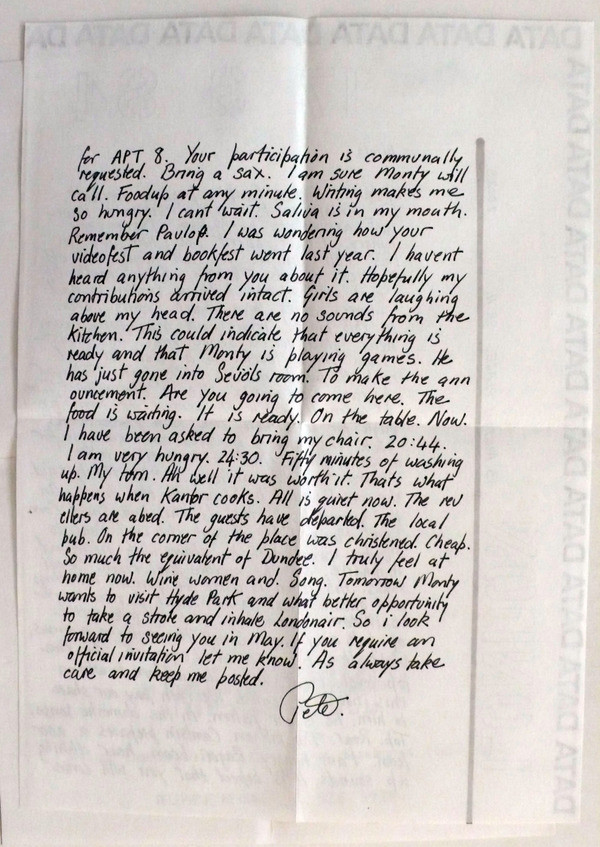 DATA DATA DATA DATA DATA DATA DATA DATA
for APT 8. Your participation is communally
requested. Bring a sax. I am sure Monty will
call. Foodup at any minute. Writing makes me
so hungry. I cant wait. Saliva is in my mouth.
Remember Pavlop. I was wondering how your
videofest and bookfest went last year. I havent
heard anything from you about it. Hopefully my
contributions arrived intact. Girls are laughing
above my head. There are no sounds from the
kitchen. This could indicate that everything is
ready and that Monty is playing games. He
has just gone into Sevöls room. To make the ann
ouncement. Are you going to come here. The
food is waiting. It is ready. On the table. Now.
I have been asked to bring my chair. 20:44.
I am very hungry. 24:30. Fifty minutes of washing
up. My turn. Ah well it was worth it. Thats what
happens when Kanbr cooks. All is quiet now. The rev
ellers are abed. The guests have departed. The local
pub. On the corner of the place was christened. Cheap.
So much the equivalent of Dundee. I truly feel at
home now. Wine women and. Song. Tomorrow Monty
wants to visit Hyde Park and what better opportunity
to take a strole and inhale Londonair. So i look
forward to seeing you in May. If you require an
official invitation let me know. As always take
care and keep me posted.
Pete.
DATA DATA DATA DATA DATA DATA DATA DATA